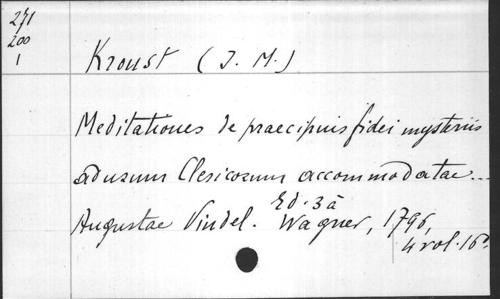 271
200
1
Kroust (J. M.)
Meditationes de praecipuis fidei mysteriis
ad usum Clericorum accommodatae...
Ed. 3a
Augustae Vindel. Wagner, 1796,
4 vol. 16º